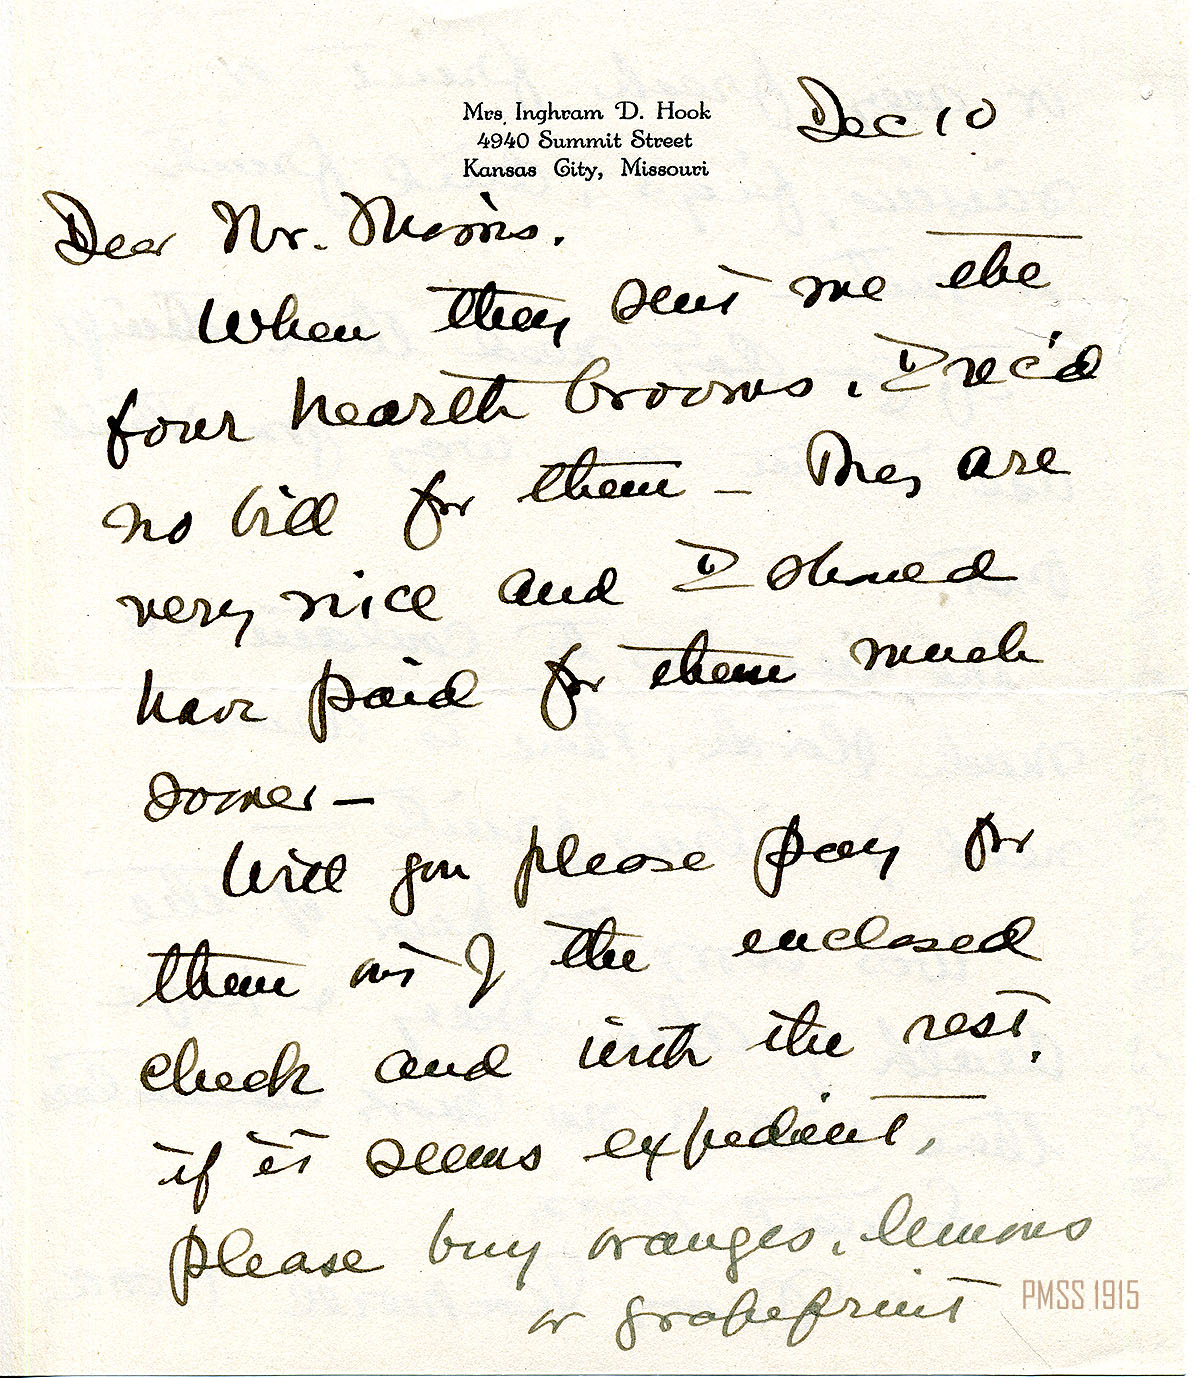 Mrs. Inghram D. Hook
4940 Summit Street
Kansas City, Missouri
Dec 10
Dear Mr. Morris.
When they sent me the
four hearth brooms, I rec'd
no bill for them — They are
very nice and I should
have paid for them much
sooner —
Will you please pay for
them out of the enclosed
check and with the rest,
if it seems expedient,
please buy oranges, lemons
or grapefruit
PMSS 1915